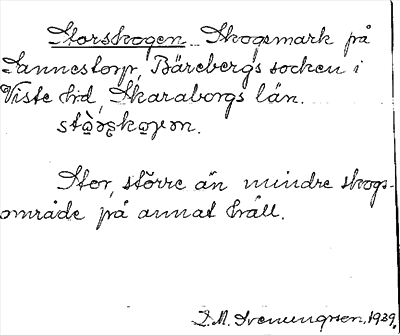 Storskogen Skogsmark på
Sannestorp, Bärebergs socken i
Viste hd, Skaraborgs län.

Stor, större än mindre skogs-
område på annat håll.
1939.